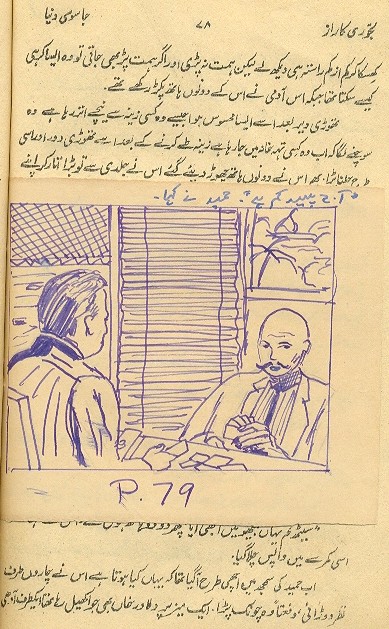 جاسوسی دنیا ۷۸ تجوری کا راز
کھسکا کر کم از کم راستہ ہی دیکھ لے لیکن ہمت نہ پڑی اور اگر ہمت پڑ بھی جاتی تو وہ ایسا کر ہی
کیسے سکتا تھا جبکہ اس آدمی نے اس کے دونوں ہاتھ پکڑ رکھے تھے۔
تھوڑی دیر بعد اسے ایسا محسوس ہوا جیسے وہ کسی زینہ سے نیچے اتر رہا ہے وہ
سوچنے لگا کہ اب وہ کسی تہہ خانہ میں جا رہا ہے زینہ طے کرنے کے بعد اسے تھوڑی دور اور اسی
طرح چلنا پڑا۔ پھر اس نے دونوں ہاتھ چھوڑ دیئے گئے اس نے جلدی سے تو بڑا اتار کر اپنے
حمید نے کہا۔
P. 79
اسی کمرے میں واپس چلا گیا۔
اب حمید کی سمجھ میں اچھی طرح آ گیا تھا کہ یہاں کیا ہوتا ہے اس نے چاروں طرف
نظر دوڑائی، دفعتاً وہ چونک پڑا۔ ایک میز پر دلاور خاں بھی جوا کھیل رہا تھا